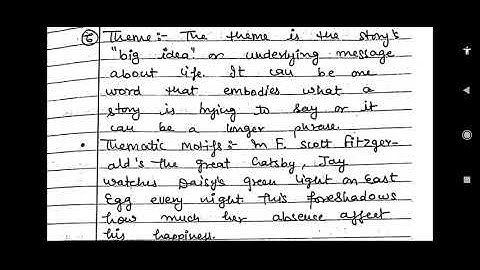 ⑥ Theme:- The theme is the story's
"big idea" or underlying message
about life. It can be one
word that embodies what a
story is trying to say or it
can be a longer phrase.
• Thematic motifs:- In F. Scott Fitzger-
ald's The great Gatsby, Jay
watches Daisy's green light on East
Egg every night This foreshadows
how much her absence affect
his happiness.